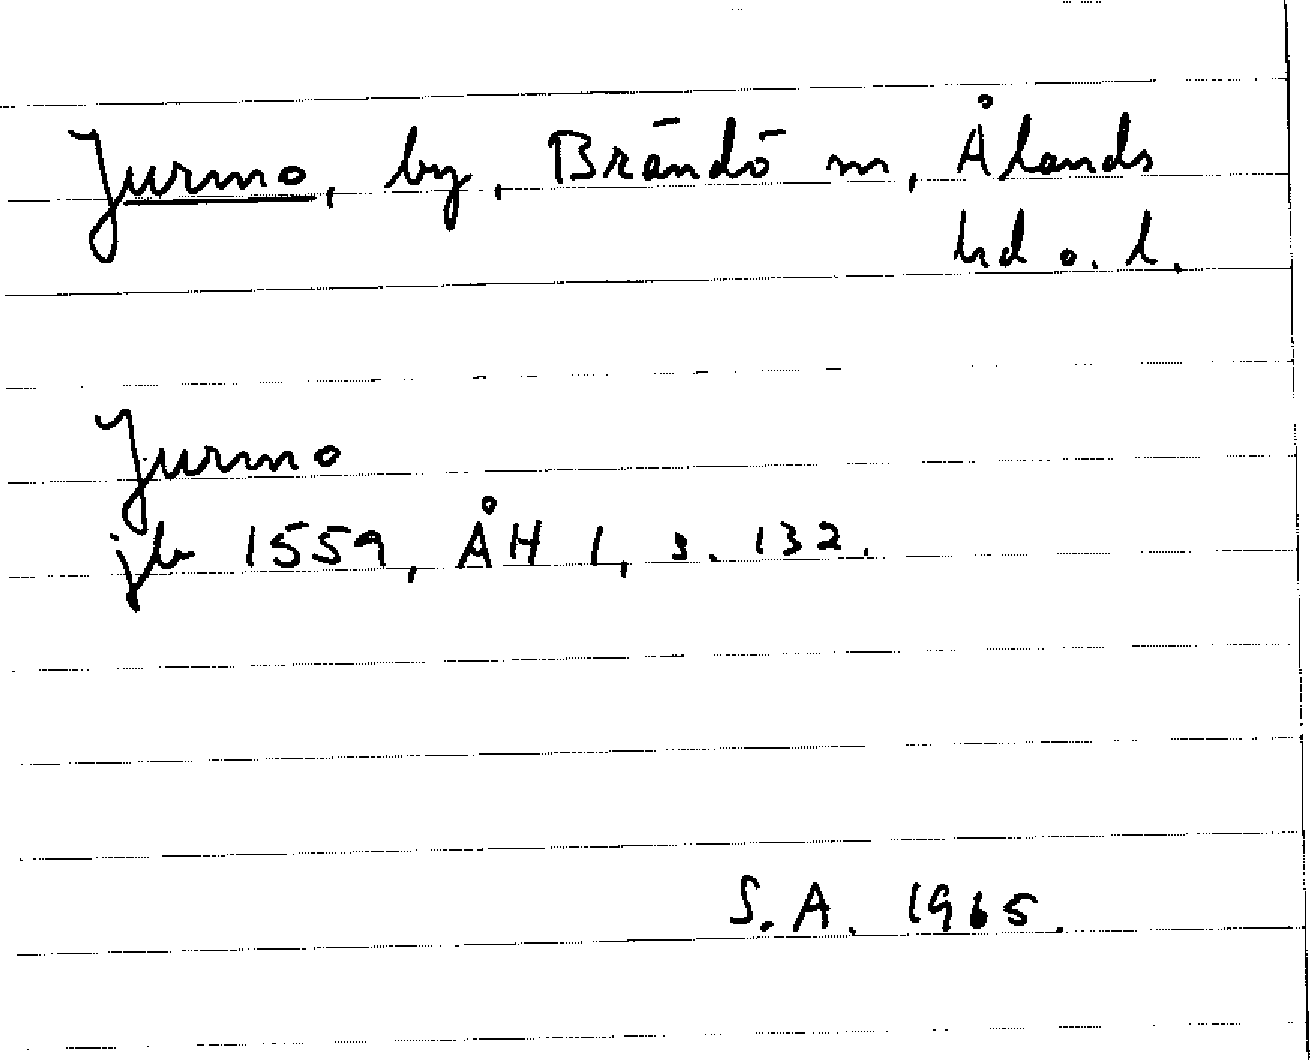 Jurmo, by, Brändö m, Ålands
hd o. l.
Jurmo
jb 1559, ÅH 1, s. 132.
S.A. 1965.